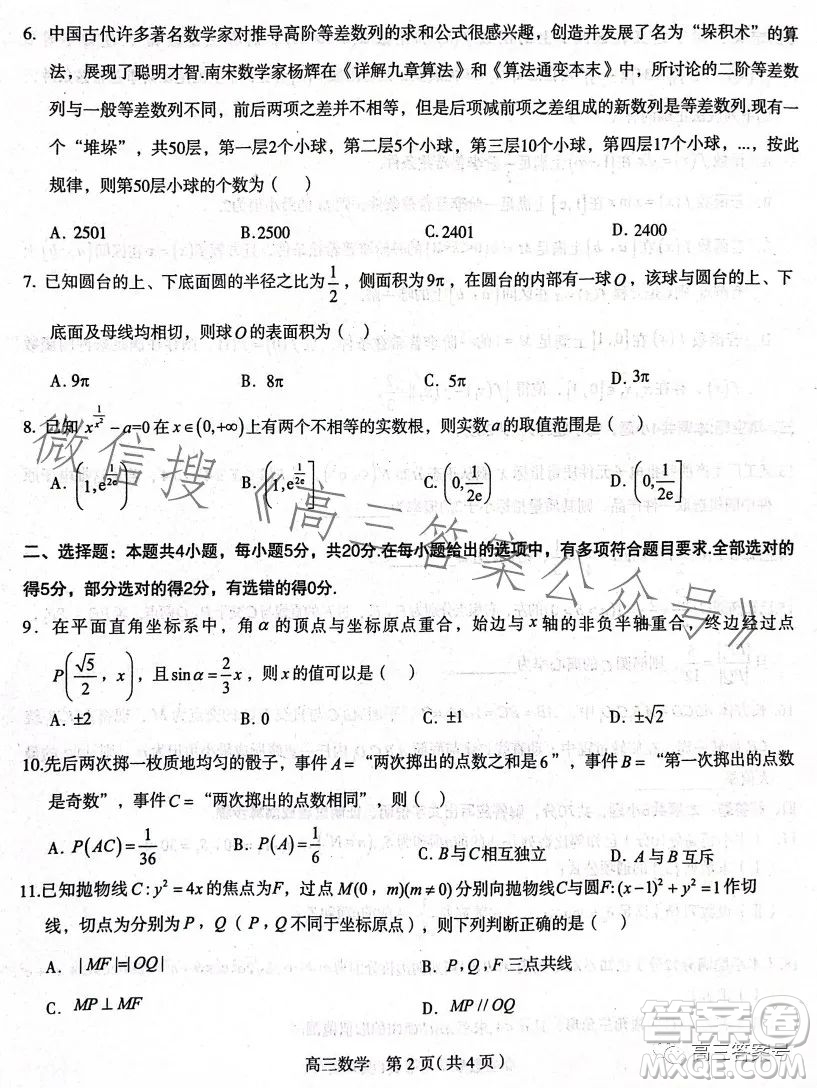 6. 中国古代许多著名数学家对推导高阶等差数列的求和公式很感兴趣，创造并发展了名为“垛积术”的算
法，展现了聪明才智.南宋数学家杨辉在《详解九章算法》和《算法通变本末》中，所讨论的二阶等差数
列与一般等差数列不同，前后两项之差并不相等，但是后项减前项之差组成的新数列是等差数列.现有一
个“堆垛”，共50层，第一层2个小球，第二层5个小球，第三层10个小球，第四层17个小球，...，按此
规律，则第50层小球的个数为（ ）
A. 2501 B. 2500 C. 2401 D. 2400
7. 已知圆台的上、下底面圆的半径之比为1/2，侧面积为9π，在圆台的内部有一球O，该球与圆台的上、下
底面及母线均相切，则球O的表面积为（ ）
A. 9π B. 8π C. 5π D. 3π
8. 已知 x^(1/x²) − a=0在 x∈(0,+∞)上有两个不相等的实数根，则实数a的取值范围是（ ）
A. (1,e^(1/2e)] B. (1,e^(1/2e)) C. (0,1/2e) D. (0,1/2e]
二、选择题：本题共4小题，每小题5分，共20分.在每小题给出的选项中，有多项符合题目要求.全部选对的
得5分，部分选对的得2分，有选错的得0分.
9. 在平面直角坐标系中，角α的顶点与坐标原点重合，始边与x轴的非负半轴重合，终边经过点
P(√5/2，x)，且sinα=2/3x，则x的值可以是（ ）
A. ±2 B. 0 C. ±1 D. ±√2
10.先后两次掷一枚质地均匀的骰子，事件A=“两次掷出的点数之和是6”，事件B=“第一次掷出的点数
是奇数”，事件C=“两次掷出的点数相同”，则（ ）
A. P(AC)=1/36 B. P(A)=1/6 C. B与C相互独立 D. A与B互斥
11.已知抛物线C:y²=4x的焦点为F，过点M(0，m)(m≠0)分别向抛物线C与圆F:(x-1)²+y²=1作切
线，切点为分别为P，Q（P，Q不同于坐标原点），则下列判断正确的是（ ）
A. |MF|=|OQ| B. P，Q，F三点共线
C. MP⊥MF D. MP//OQ
高三数学 第2页（共4页）
微信搜《高三答案公众号》
答案圈
高三答案号